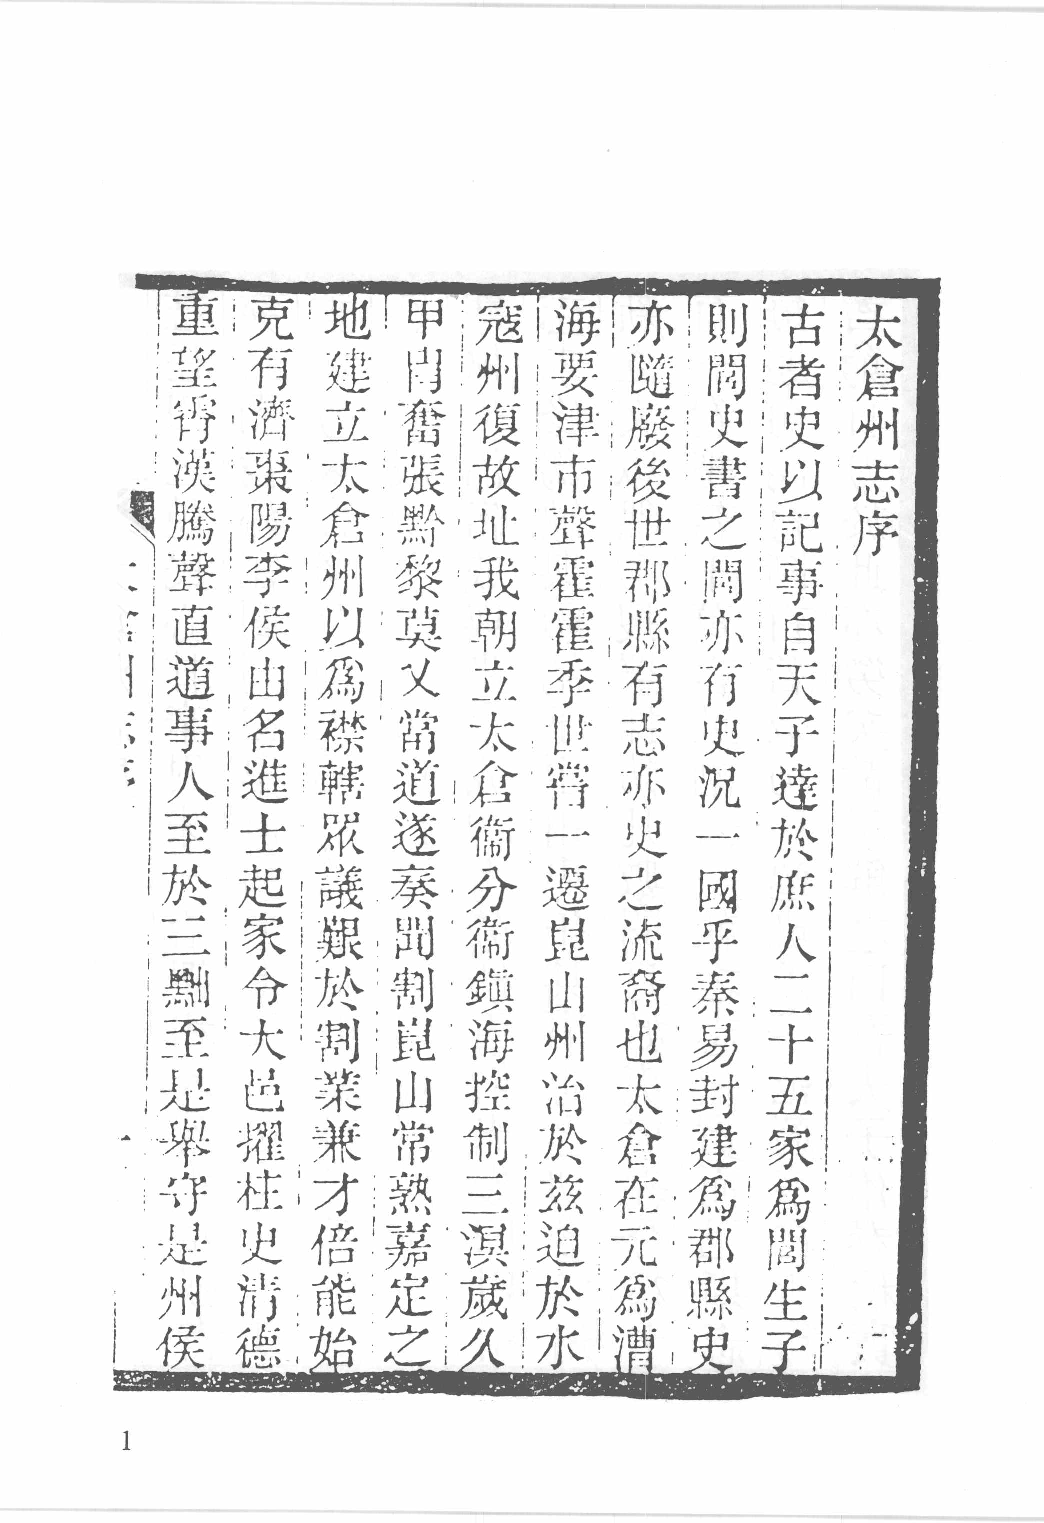 太倉州志序
古者史以記事自天子達於庶人二十五家爲閭生子
則閭史書之閭亦有史況一國乎秦易封建爲郡縣史
亦隨廢後世郡縣有志亦史之流裔也太倉在元爲漕
海要津市聲霍霍季世嘗一遷崑山州治於兹迫於水
寇州復故址我朝立太倉衞分衞鎮海控制三溟歲久
甲胄奮張黔黎莫乂當道遂奏聞割崑山常熟嘉定之
地建立太倉州以爲襟轄眾議艱於割業兼才倍能始
克有濟棗陽李侯由名進士起家令大邑擢柱史清德
重望霄漢騰聲直道事人至於三黜至是舉守是州侯
1